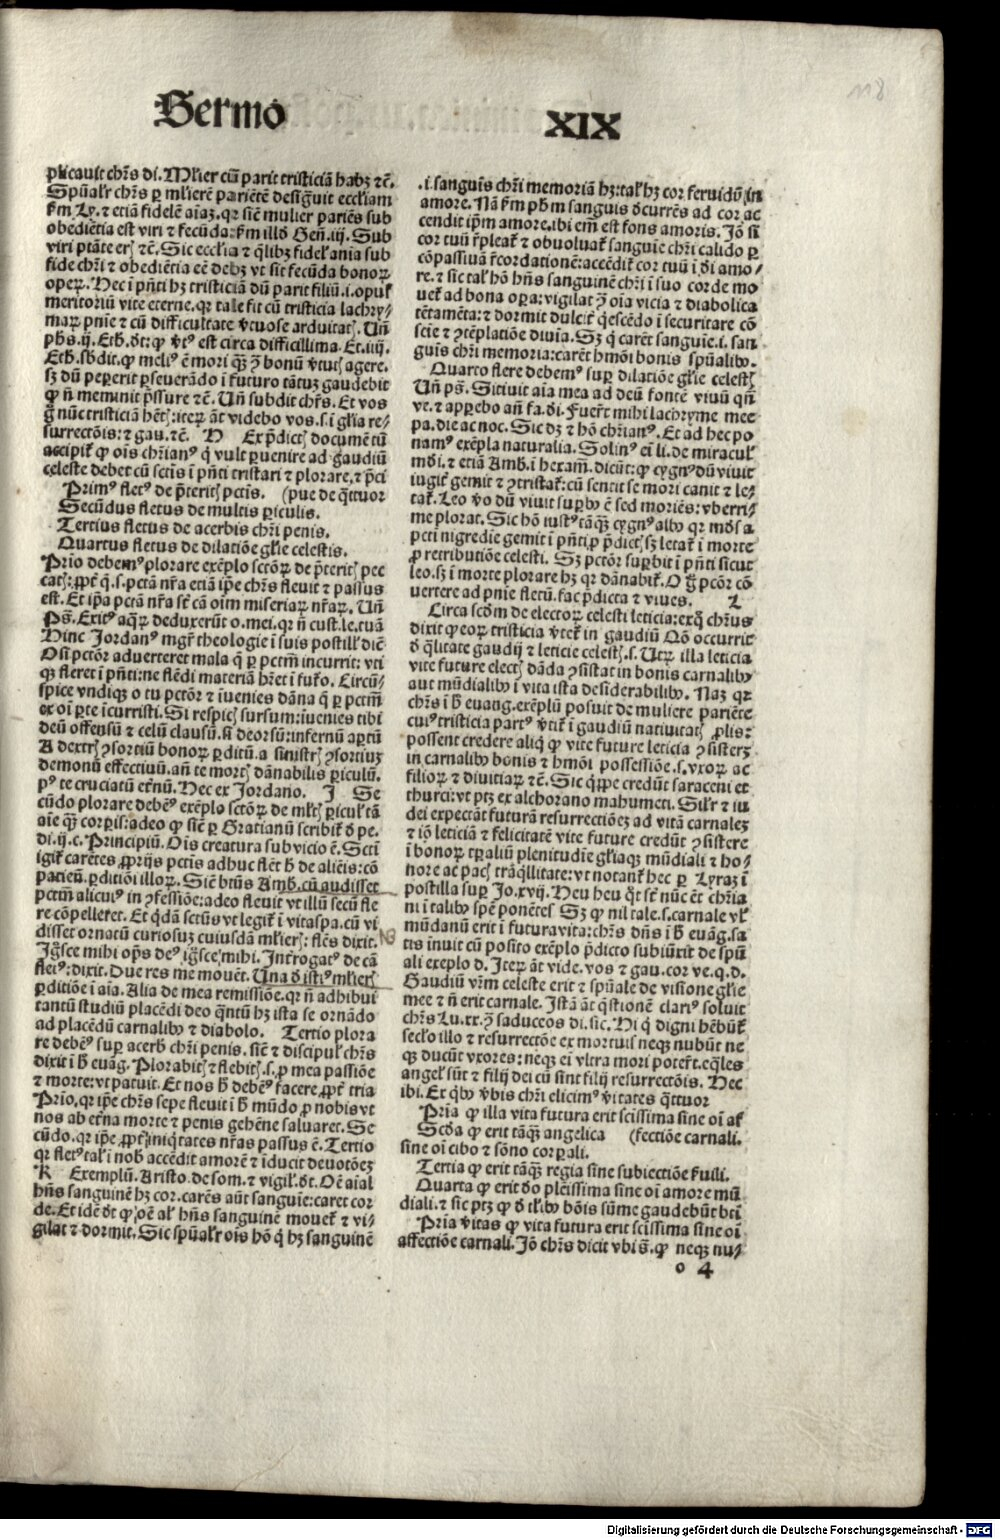 118
Sermo XIX
plicauit chr̄s di. Ml̓ier cū parit tristiciā habꝫ ⁊c̄.
Spūal̓r chr̄s ꝑ ml̓ierē pariētē desig̃uit eccl̓iam
ẜm Ly. ⁊ etiā fidelē aīaꝫ. qꝛ sic̄ mulier pariēs sub
obediētia est viri ⁊ fecūda: ẜm illđ Geñ. iij. Sub
viri ptāte er̄ ⁊c̄. Sic eccl̓ia ⁊ q̄libꝫ fidel̓ anīa sub
fide chr̄i ⁊ obediētia eē debꝫ vt sit fecūda bonoꝝ
opeꝝ. Hec ī pn̄ti hꝫ tristiciā dū parit filiū .i. opus
meritoriū vite eterne. qꝛ tale fit cū tristicia lachry-
maꝝ pn̄ie ⁊ cū difficultate v̓tuose arduitat̄. Uñ
ph̄s .ij. Eth. dt̄: ꝙ v̓tꝰ est circa difficillima. Et .iiij.
Eth. sb̄dit. ꝙ meliꝰ ē mori qꝫ̄ ꝯ̄ bonū v̓tut̄ agere.
sꝫ dū peꝑerit ꝑseuerādo ī futuro tātuꝫ gaudebit
ꝙ ñ meminit p̄ssure ⁊c̄. Uñ subdit chr̄s. Et vos
g̊ nūc tristiciā hēt̄: iteꝝ āt videbo vos .s. ī gl̓ia re-
surrectōis: ⁊ gau. ⁊c̄. H Ex p̄dict̄ documētū
accipit̄ ꝙ oīs chr̄ianꝰ q̄ vult ꝑuenire ad gaudiū
celeste debet cū sctīs ī pn̄ti tristari ⁊ plorare, ⁊ p̄ci
Primꝰ fletꝰ de p̄terit̄ pctīs. (pue de q̄ttuor
Secūdus fletus de multis ꝑiculis.
Tertius fletus de acerbis chr̄i penis.
Quartus fletus de dilatiōe gl̓ie celestis.
Prīo debemꝰ plorare exēplo sctōꝝ de p̄terit̄ pec
cat̄: ꝓpt̄ q̄ .s. pctā nr̄a etiā ip̄e chr̄s fleuit ⁊ passus
est. Et ip̄a pctā nr̄a st̄ cā oīm miseriaꝝ nr̄aꝝ. Uñ
Ps̄. Exitꝰ aqꝝ deduxerūt o. mei. qꝛ ñ cust. le. tuā
Hinc Jordanꝰ mgr̄ theologie ī suis postill̓ dic̄
O si pctōr aduerteret mala q̄ ꝑ pctm̄ incurrit: vti
qꝫ fleret ī pn̄ti: ne flēdi materiā hr̄et ī fut̄o. Circū-
spice vndiqꝫ o tu pctōr ⁊ iuenies dāna q̄ ꝑ pctm̄
ex oī ꝑte īcurristi. Si respic̄ sursum: iuenies tibi
deū offensū ⁊ celū clausū. si deorsū: infernū aꝑtū
A dextr̄ ꝯsortiū bonoꝝ ꝑditū. a sinistr̄ ꝯsortiuꝫ
demonū effectiuū. añ te mort̄ dānabilis ꝑiculū.
pꝰ te cruciatū et̄nū. Hec ex Jordano. I Se
cūdo plorare debēꝰ exēplo sctōꝝ de ml̓t̄ ꝑicul̓ tā
aīe qꝫ̄ corꝑis: adeo ꝙ sic̄ ꝑ Gratianū scribit̄ đ pe.
di. ij. c. Principiū. Oīs creatura sub vicio ē. Sctī
igit̄ carētes ꝓprijs pctīs adhuc flēt h̄ de aliēis: cō
patieñ. ꝑditiōi illoꝝ. Sic̄ bt̄us Amb. cū audisset
pctm̄ alicuiꝰ in ꝯfessiōe: adeo fleuit vt illū secū fle
re cōpelleret. Et qđā sctūs vt legit̄ ī vitaspa. cū vi
disset ornatū curiosuꝫ cuiusdā ml̓ier̄: flēs dixit.
Ig̓sce mihi op̄s deꝰ, ig̓sce mihi. Int̄rogatꝰ de cā
fletꝰ: dixit. Due res me mouēt. Una đ istiꝰ ml̓ier̄
ꝑditiōe ī aīa. Alia de mea remissiōe. qꝛ ñ adhibui
tantū studiū placēdi deo q̄ntū hꝫ ista se ornādo
ad placēdū carnalibꝰ ⁊ diabolo. Tertio plora
re debēꝰ suꝑ acerb̄ chr̄i penis. sic̄ ⁊ discipul̓ chr̄s
dixit ī h̄ euāg̓. Plorabit̄ ⁊ flebit̄ .s. ꝑ mea passiōe
⁊ morte: vt patuit. Et nos h̄ debēꝰ facere ꝓpt̄ tria
Prīo, qꝛ ip̄e chr̄s sepe fleuit ī h̄ mūdo ꝓ nobis vt
nos ab et̄na morte ⁊ penis gehēne saluaret. Se
cūdo. qꝛ ip̄e ꝓpt̄ iniq̄tates nr̄as passus ē. Tertio
qꝛ fletꝰ tal̓ ī nob̄ accēdit amorē ⁊ īducit deuotōeꝫ
K Exemplū. Aristo. de som. ⁊ vigil̓. dt̄. Oē aīal
hn̄s sanguinē hꝫ cor. carēs aūt sanguīe: caret cor
de. Et idē dt̄ ꝙ oē al̓ hn̄s sanguinē mouet̄ ⁊ vi-
gilat ⁊ dormit. Sic spūal̓r oīs hō q̄ hꝫ sanguinē
.i. sanguīs chr̄i memoriā hꝫ: tal̓ hꝫ cor feruidū in
amore. Nā ẜm ph̄m sanguis đcurrēs ad cor ac
cendit ip̄m amore. ibi em̄ est fons amoris. Jō si
cor tuū r̄pleat̄ ⁊ obuoluat̄ sanguīe chr̄i calido ꝑ
cōpassiuā r̄cordationē: accēdit̄ cor tuū ī đi amo-
re. ⁊ sic tal̓ hō hn̄s sanguinē chr̄i ī suo corde mo
uet̄ ad bona oꝑa: vigilat ꝯ̄ oīa vicia ⁊ diabolica
tētamēta: ⁊ dormit dulcit̄ q̄escēdo ī securitate cō
scie ⁊ ꝯtēplatiōe diuīa. Sꝫ q̄ carēt sanguīe .i. san
guīs chr̄i memoria: carēt hmōi bonis spūalibꝰ.
Quarto flere debemꝰ suꝑ dilatiōe gl̓ie celest̄
Uñ ps̄. Sitiuit aīa mea ad deū fontē viuū qn̄
ve. ⁊ apꝑebo añ fa. đi. Fuer̄t mihi lachryme mee
pa. die ac noc. Sic dꝫ ⁊ hō chr̄ianꝰ. Et ad hec po
namꝰ exēpla naturalia. Solinꝰ ei li. de miracul̓
mđi. ⁊ etiā Amb. ī hexam̄. dicūt: ꝙ cygnꝰ dū viuit
iugit̄ gemit ⁊ ꝯtristat̄: cū sentit se mori canit ⁊ le-
tat̄. Leo v̓o dū viuit suꝑbꝰ ē sed moriēs: vberri-
me plorat. Sic hō iustꝰ tāqꝫ̄ cygnꝰ albꝰ qꝛ mđs a
pcti nigredie gemit ī pn̄ti, ꝓ p̄dict̄ sꝫ letat̄ ī morte
ꝓ retributiōe celesti. Sꝫ pctōr suꝑbit ī pn̄ti sicut
leo. sꝫ ī morte plorare hꝫ qꝛ dānabit̄. O g̊ pctōr cō
uertere ad pn̄ie fletū. fac p̄dicta ⁊ viues. L
Circa scđm de electoꝝ celesti leticia: ex q̊ chr̄us
dixit ꝙ eoꝝ tristicia v̓tet̄ in gaudiū Qō occurrit
đ q̄litate gaudij ⁊ leticie celest̄ .s. Utꝝ illa leticia
vite future elect̄ dāda ꝯsistat in bonis carnalibꝰ
aut mūdialibꝰ ī vita ista desiderabilibꝰ. Naꝫ qꝛ
chr̄s ī h̄ euang. exēplū posuit de muliere pariēte
cuiꝰ tristicia partꝰ v̓tit̄ ī gaudiū natiuitat̄ ꝓlis:
possent credere aliq̄ ꝙ vite future leticia ꝯsisteꝫ
in carnalibꝰ bonis ⁊ hmōi possessiōe .s. vxoꝝ ac
filioꝝ ⁊ diuitiaꝝ ⁊c̄. Sic q̄ppe credūt saraceni et
thurci: vt ptꝫ ex alchorano mahumeti. Sil̓r ⁊ iu
dei expectāt futurā resurrectiōeꝫ ad vitā carnaleꝫ
⁊ iō leticiā ⁊ felicitatē vite future credūt ꝯsistere
ī bonoꝝ tp̄aliū plenitudīe gl̓iaqꝫ mūdiali ⁊ ho-
nore ac pac̄ trāq̄llitate: vt notant̄ hec ꝑ Lyraꝫ ī
postilla suꝑ Jo. xvij. Heu heu q̄t st̄ nūc ēt chr̄ia
ni ī talibꝰ spē ponētes Sꝫ ꝙ nil tale .s. carnale vl̓
mūdanū erit ī futura vita: chr̄s dn̄s ī h̄ euāg. sa
tis inuit cū posito exēplo p̄dicto subiūxit de spū
ali exeplo d. Iteꝝ āt vide. vos ⁊ gau. cor ve. q. d.
Gaudiū vr̄m celeste erit ⁊ spūale de visione gl̓ie
mee ⁊ ñ erit carnale. Istā āt q̄stionē clariꝰ soluit
chr̄s Lu. xx. ꝯ̄ saduceos di. sic. Hi q̄ digni hēbūt̄
secl̓o illo ⁊ resurrectōe ex mortuis neqꝫ nubūt ne
qꝫ ducūt vxores: neqꝫ ei vltra mori poter̄t. eq̄les
angel̓ sūt ⁊ filij dei cū sint filij resurrectōis. Hec
ibi. Et q̄bꝰ v̓bis chr̄i elicimꝰ v̓itates q̄ttuor
Prīa ꝙ illa vita futura erit scīssima sine oī af
Scđa ꝙ erit tāqꝫ̄ angelica (fectiōe carnali.
sine oī cibo ⁊ sōno corꝑali.
Tertia ꝙ erit tāqꝫ̄ regia sine subiectiōe ẜuili.
Quarta ꝙ erit đo plēissima sine oī amore mū
diali. ⁊ sic ptꝫ ꝙ đ tl̓ibꝰ bōis sūme gaudebūt bt̄i
Prīa v̓itas ꝙ vita futura erit scīssima sine oī
affectiōe carnali. Jō chr̄s dicit vbi s̄. ꝙ neqꝫ nu-
o 4
Digitalisierung gefördert durch die Deutsche Forschungsgemeinschaft - DFG